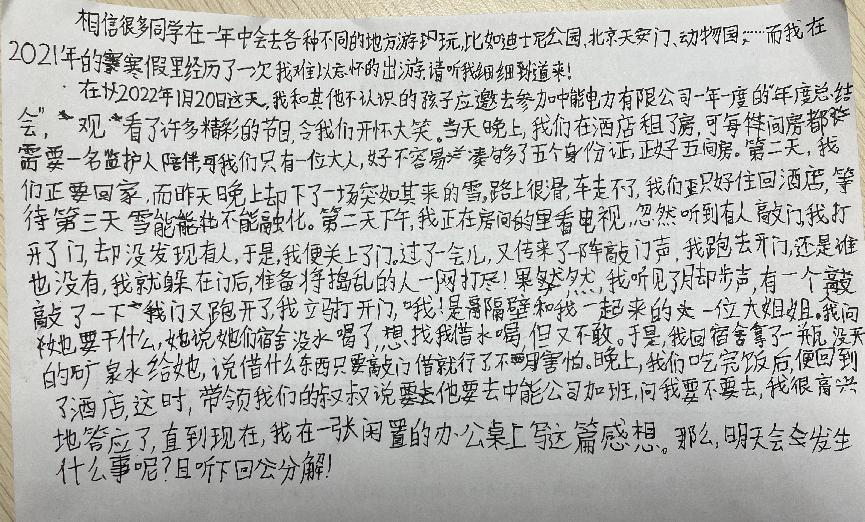 相信很多同学在一年中会去各种不同的地方游玩,比如迪士尼公园,北京天安门、动物园,……而我,在
2021年的寒假里经历了一次我难以忘怀的出游,请听我细细到道来!
在2022年1月20日这天,我和其他不认识的孩子应邀去参加中能电力有限公司一年一度的“年度总结
会”,观看了许多精彩的节目,令我们开怀大笑。当天晚上,我们在酒店租了房,可每间房都
需要一名监护人陪伴,可我们只有一位大人,好不容易凑够了五个身份证,正好五间房。第二天,我
们正要回家,而昨天晚上却下了一场突如其来的雪。路上很滑,车走不了,我们只好住回酒店,等
待第三天雪能不能融化。第二天下午,我正在房间的里看电视,忽然听到有人敲门,我打
开了门,却没发现有人,于是,我便关上了门,过了一会儿,又传来了一阵敲门声,我跑去开门,还是谁
也没有,我就躲在门后,准备将捣乱的人一网打尽!果然,我听见了脚步声,有一个敲
敲了一下我门又跑开了,我立马打开门,哦!是隔壁和我一起来的一位大姐姐。我问
她要干什么,她说她们宿舍没水喝了,想找我借水喝,但又不敢。于是,我回宿舍拿了一瓶没开
的矿泉水给她,说借什么东西只要敲门借就行了不用害怕。晚上,我们吃完饭后,便回到
了酒店,这时,带领我们的叔叔说他要去中能公司加班,问我要不要去,我很高兴
地答应了,直到现在,我在一张闲置的办公桌上写这篇感想。那么,明天会发生
什么事呢?且听下回公分解!